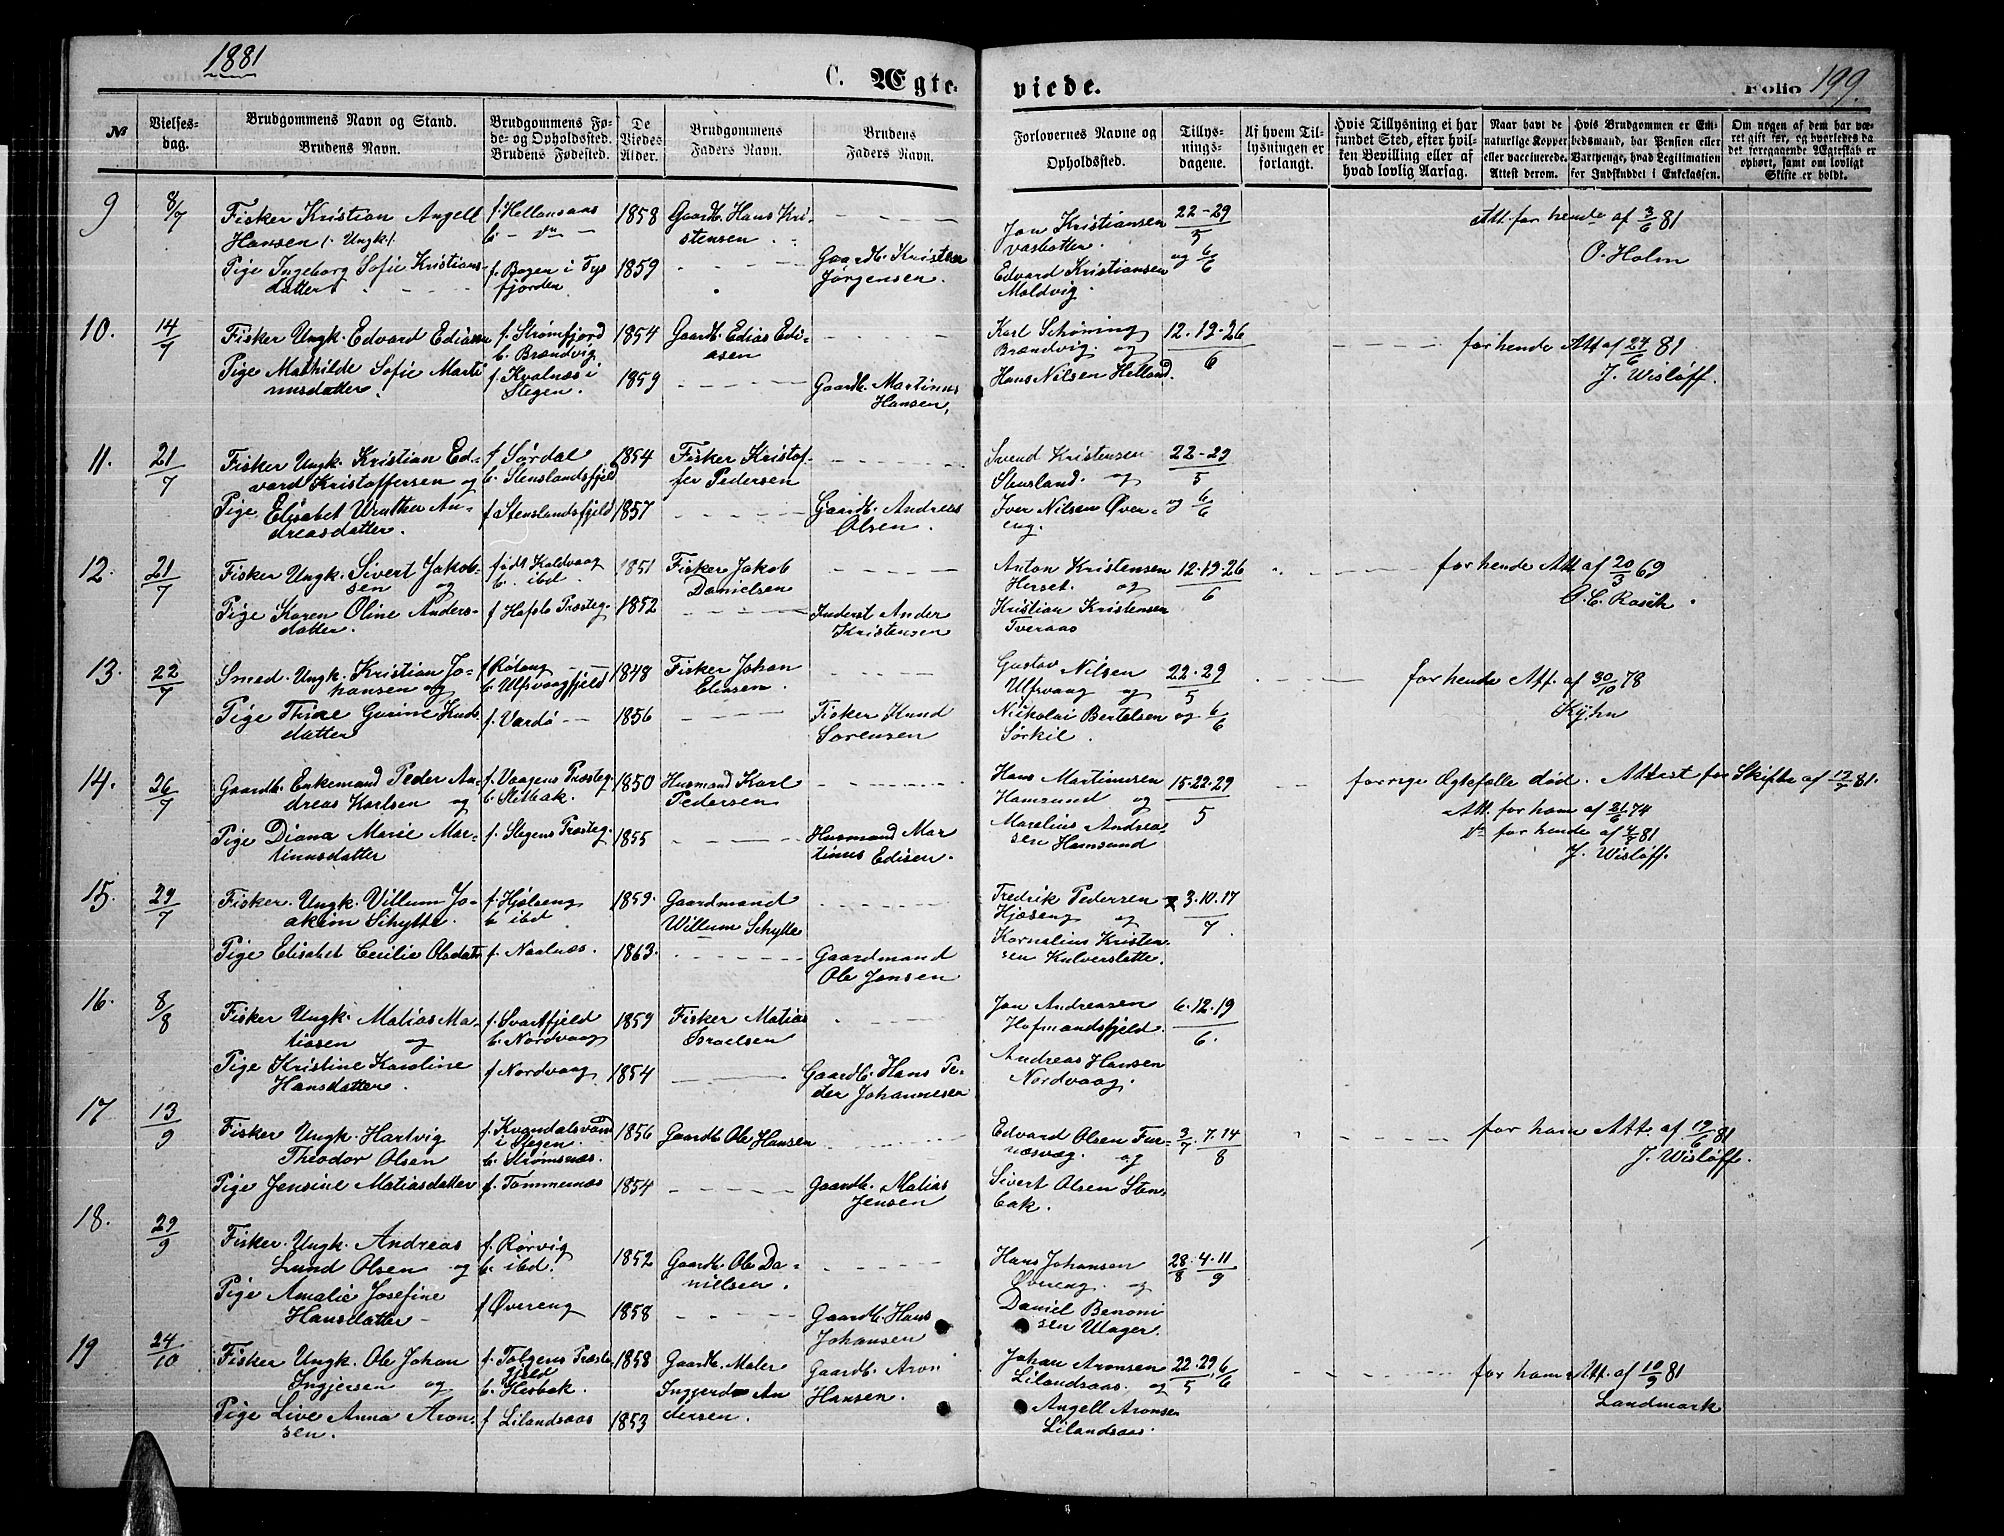 1881
C. Ægte-
viede.
Folio 199.
№
Vielses-
dag.
Brudgommens Navn og Stand.
Brudens Navn.
Brudgommens Fø-
de- og Opholdssted.
Brudens Fødested.
De
Viedes
Alder.
Brudgommens
Faders Navn.
Brudens
Faders Navn.
Forlovernes Navne og
Opholdssted.
Tillys-
nings-
dagene.
Af hvem Til-
lysningen er
forlangt.
Hvis Tillysning ei har
fundet Sted, efter hvil-
ken Bevilling eller af
hvad lovlig Aarsag.
Naar havt de
naturlige Kopper
eller vaccinerede.
Attest derom.
Hvis Brudgommen er Em-
bedsmand, har Pension eller
Vartpenge, hvad Legitimation
for Indskuddet i Enkekassen.
Om nogen af dem har væ-
ret gift før, og hvorledes da
det foregaaende Ægteskab er
ophørt, samt om lovligt
Skifte er holdt.
9
8/7
Fisker Kristian Angell
Hansen (Ungk)
Pige Ingeborg Sofie Kristians-
datter
f Hellansaas
b - do -
f. Bogen i Tys
fjorden
1858
1859
Gaardb. Hans Kri-
stensen
Gaardb. Kristen
Jørgensen.
Jon Kristiansen
Vasbotten.
Edvard Kristiansen
Moldvig.
22-29/5
og 6/6
Att. for hende af 3/6 81
O. Holm
10.
14/7
Fisker Ungk. Edvard Ediassen
Pige Mathilde Sofie Marti
nusdatter.
f. Strømfjord
b. Brændvig
f. Kvalnæs i
Stegen.
1854
1859
Gaardb. Edias Edi-
asen
Gaardb. Martinus
Hansen,
Karl Schøning
Brændvig. og
Hans Nilsen Helland.
12. 19. 26/6
for hende Att af 24/6 81
J. Wisløff.
11.
21/7
Fisker Ungk. Kristian Ed-
vard Kristoffersen og
Pige Elisabet Urathea An-
dreasdatter.
f Sørdal
b. Stenslandsfjeld
f Stenslandsfjeld
1854
1857
Fisker Kristof-
fer Pedersen
Gaardb. Andreas
Olsen.
Svend Kristensen
Stensland. og
Iver Nilsen Øver-
eng.
22-29/5
og 6/6
12.
21/7
Fisker Ungk. Sivert Jakob-
sen og
Pige Karen Oline Anders-
datter.
født Kaldvaag
b. ibd.
f Hafslo Præsteg.
1851
1852
Fisker Jakob
Danielsen
Inderst Ander
Kristensen
Anton Kristensen
Herset. og
Kristian Kristensen
Tveraas
12.19.26/6
for hende Att af 20/3 69
O. C. Rasch.
13.
22/7
Smed. Ungk. Kristian Jo-
hansen og
Pige Thrine Gurine Knds
datter
f Røtang
b. Ulfsvaagfjeld
f. Vardø
1848
1856
Fisker Johan
Eliasen.
Fisker Knud
Sørensen
Gustav Nilsen
Ulfsvaag og
Nikolai Bertelsen
Sørkil.
22.29/5
og 6/6
for hende Att. af 30/10 78
Kyhn
14.
26/7
Gaardb. Enkemand Peder An-
dreas Karlsen og
Pige Diana Marie Mar-
tinusdatter
f. Vaagens Præsteg.
b. Stitbak.
f. Stegens Præsteg.
1850
1855
Husmand Karl
Pedersen
Husmand Mar
tinus Edisen.
Hans Martinusen
Hamsund og
Marelius Andrea-
sen Hamsund
15.22.29/5
forrige Ægtefælle død. Attest for Skifte af 12/7 81.
Att. for ham af 21/6 74
do for hende af 2/7 81
J. Wisløff.
15.
29/7
Fisker. Ungk. Villum Jo-
akim Schytte.
Pige Elisabet Cecilie Olsdatr
f. Hjelseng
b. ibd
f. Naalnæs.
1859.
1863.
Gaardmand
Willum Schytte
Gaardmand
Ole Jansen
Fredrik Pedersen
Kjæseng og
Kornelius Kristen-
sen Kulverslette.
3.10.17/7
16.
8/8
Fisker Ungk. Matias Ma-
tiasen og
Pige Kristine Karoline
Hansdatter.
f. Svartfjeld
b. Nordvaag
f Nordvaag
1859
1854
Fisker Matias
Israelsen
Gaardb. Hans Pe-
der Johannesen
Jon Andreasen
Hofmandsfjeld.
Andreas Hansen
Nordvaag.
6.12.19/6.
17
13/9
Fisker Ungk. Hartvig
Theodor Olsen
Pige Jensine Matiasdatter
f. Kvandalsvand
i Stegen.
b. Strømsnæs.
f. Tømmernæs
1856
1854
Gaardb Ole Hansen
Gaardb. Matias
Jensen
Edvard Olsen Fur-
næsvæg. og
Sivert Olsen Sten-
bak.
3/7. 7.14/8
for ham Att. af 19/6 81
J. Wisløff.
18.
29/9
Fisker. Ungk. Andreas
Lund Olsen og
Pige Amalie Josefine
Hansdatter
f. Rørvig
b. ibd.
f Øvereng
1852
1858
Gaardb. Ole Da-
nielsen.
Gaardb. Hans
Johansen
Hans Johansen
Øvereng. og
Daniel Benoni
sen Ulager.
28/8. 4.11/9
19
24/10
Fisker Ungk. Ole Johan
Ingjersen og
Pige Live Anna Aron-
sen.
f. Tolgens Præste-
gjeld
b. Stenbak.
f Lilandsaas
1858
1853
Gaardb. Maler
Ingjerd An
dersen.
Gaardb. Aron
Hansen.
Johan Aronsen
Lilandsaas. og
Angell Aronsen
Lilandsaas.
22.29/5, 6/6
for ham Att. af 10/9 81
Landmark